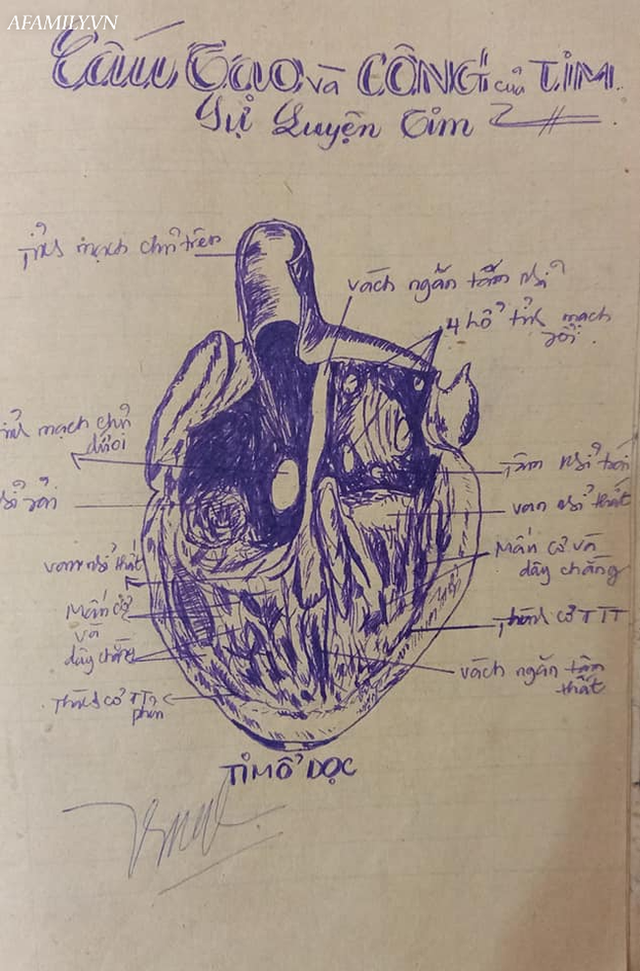 AFAMILY.VN
Cấu Tạo và CÔNG của TIM.
Sự Luyện Tim
Tĩnh mạch chủ trên
vách ngăn tâm nhĩ
4 lổ tĩnh mạch
mạch chủ
dưới
Tâm nhĩ trái
van nhĩ thất
Mấn cơ và
dây chằng
van nhĩ thất
Mấn cơ
và
dây chằng
Thành cơ TTT
vách ngăn tâm
thất
Thành cơ TT
TIM Ổ DỌC